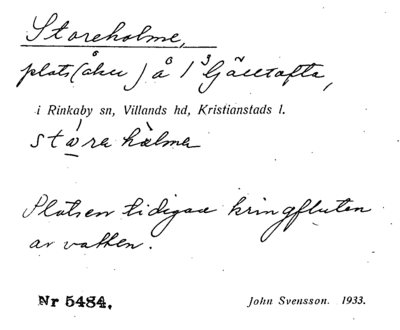 Storeholme,
plats (åker) å 1³ Gälltofta,
i Rinkaby sn, Villands hd, Kristianstads l.
stòra hòlma
Platsen tidigare kringfluten
av vatten.
Nr 5484.
John Svensson. 1933.